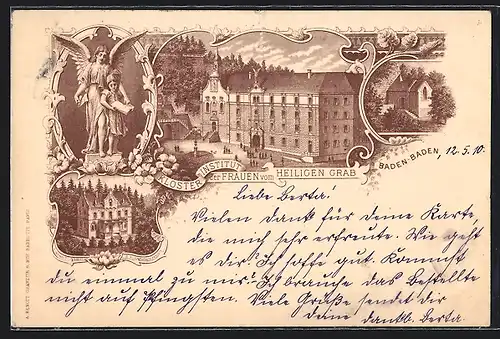 KLOSTER INSTITUT
der FRAUEN vom HEILIGEN GRAB
BADEN-BADEN, 12.5.10.
Liebe Berta!
Vielen Dank für deine Karte,
die mich sehr erfreute. Wie geht
es dir? Ich hoffe gut. Kommst
du einmal zu mir? Ich brauche das Bestellte
nicht auf Pfingsten. Viele Grüße sendet dir
deine dankb. Berta.